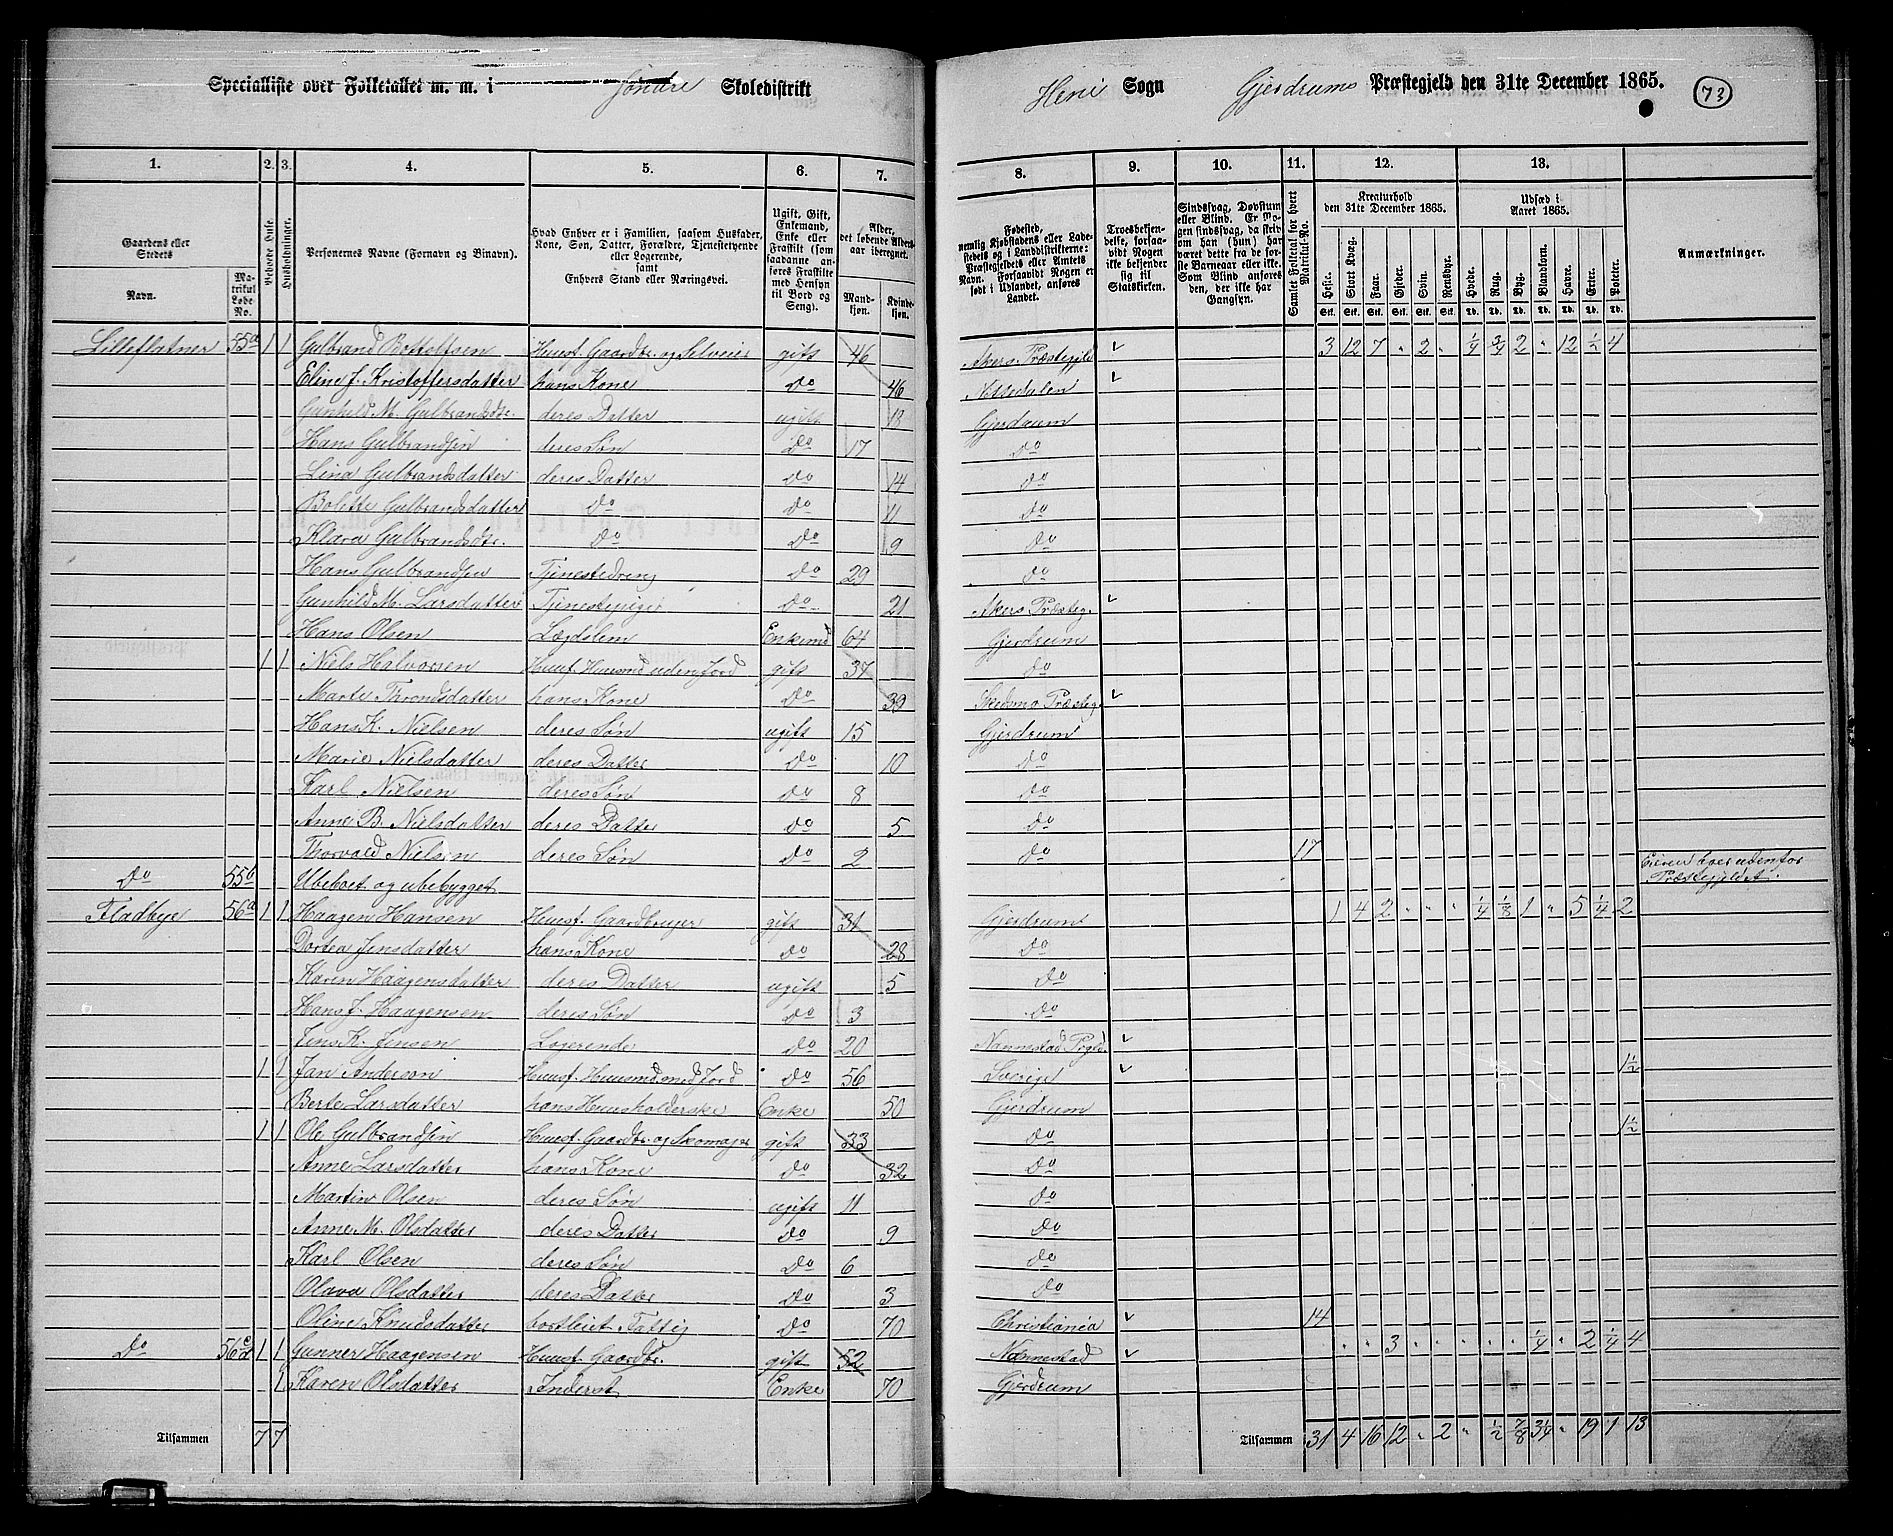 Specialliste over Folketallet m. m. i Søndre Skoledistrikt
Heni Sogn Gjerdrums Præstegjeld den 31te December 1865. 73
1. 2. 3. 4. 5. 6. 7.
8. 9. 10. 11. 12. 13.
Gaardens eller Stedets
Navn.
Matrikul Løbe-No.
Beboede Huse.
Husholdninger.
Personernes Navne (Fornavn og Binavn).
Hvad Enhver er i Familien, saasom Husfader, Kone, Søn, Datter, Forældre, Tjenestetyende eller Logerende, samt Enhvers Stand eller Næringsvei.
Ugift, Gift, Enkemand, Enke eller Fraskilt (som saadanne anføres Fraskilte med Hensyn til Bord og Seng).
Alder, det løbende Alders-aar iberegnet.
Mandkjøn. Kvindekjøn.
Fødested, nemlig Kjøbstadens eller Ladestedets og i Landdistrikterne: Præstegjeldets eller Amtets Navn. Forsaavidt Nogen er født i Udlandet, anføres Landet.
Troesbekjendelse, forsaavidt Nogen ikke bekjender sig til Statskirken.
Sindssvag, Døvstum eller Blind. Er Nogen sindssvag, da skriv om han (hun) har været dette fra de første Barneaar eller ikke. Som Blind anføres den, der ikke har Gangsyn.
Samlet Folketal for hvert Matrikul-No.
Kreaturhold den 31te December 1865.
Heste. Stort Kvæg. Faar. Gjeder. Svin. Rensdyr.
Udsæd i Aaret 1865.
Hvede. Rug. Byg. Blandkorn. Havre. Erter. Poteter.
Anmærkninger.
Lilleflatner 55a 1 1 Gulbrand Bottolfsen Huusf. Gaardbr. og Selveier gift 46 Akers Præstegjeld 3 12 7 " 2 " 1/4 3/4 2 " 12 1/2 4
Eline J. Kristoffersdatter hans Kone do 46 Nittedalen
Gunhild M. Gulbrandsdtr. deres Datter ugift 18 Gjerdrum
Hans Gulbrandsen deres Søn do 17 do
Lina Gulbrandsdatter deres Datter do 14 do
Bolette Gulbrandsdatter do do 11 do
Klara Gulbrandsdtr. do do 9 do
Hans Gulbrandsen Tjenestedreng do 29 do
Gunhild M. Larsdatter Tjenestepige do 21 Akers Præsteg.
Hans Olsen Lægdslem Enkemd 64 Gjerdrum
1 1 Niels Halvorsen Huusf. Huusmd uden Jord gift 37 do
Marte Throndsdatter hans Kone do 39 Skedsmo Præsteg.
Hans K. Nielsen deres Søn ugift 15 Gjerdrum
Marie Nielsdatter deres Datter do 10 do
Karl Nielsen deres Søn do 8 do
Anne B. Nielsdatter deres Datter do 5 do
Thorvald Nielsen deres Søn do 2 do 17
Do 55 Ubeboet og ubebygget Eieren boer udenfor Præstegjeldet.
Fladbye 56a 1 1 Haagen Hansen Huusf. Gaardbruger gift 31 Gjerdrum 1 4 2 " " " 1/4 1/8 1 " 5 1/4 2
Dortea Jensdatter hans Kone do 28 do
Karen Haagensdatter deres Datter ugift 5 do
Hans J. Haagensen deres Søn do 3 do
Jens K. Jensen Logerende do 20 Nannestad Prgld.
1 1 Jan Anderson Huusf. Huusmd med Jord do 56 Sverige 1 1/2
Berte Larsdatter hans Huusholderske Enke 50 Gjerdrum
1 1 Ole Gulbrandsen Huusf. Gaardbr. og Skomager gift 33 do 1 1/2
Anne Larsdatter hans Kone do 32 do
Martin Olsen deres Søn ugift 11 do
Anne M. Olsdatter deres Datter do 9 do
Karl Olsen deres Søn do 6 do
Olava Olsdatter deres Datter do 3 do
Oline Knudsdatter bortleiet Fattig do 70 Christiania 14
Do 56 1 1 Gunner Haagensen Huusf. Gaardbr. gift 52 Nannestad " " 3 " " " " 1/4 " 2 1/4 4
1 Karen Olsdatter Inderst Enke 70 Gjerdrum
Tilsammen 7 7
Tilsammen 31 4 16 12 " 2 " 1/2 7/8 3 1/4 " 19 1 13